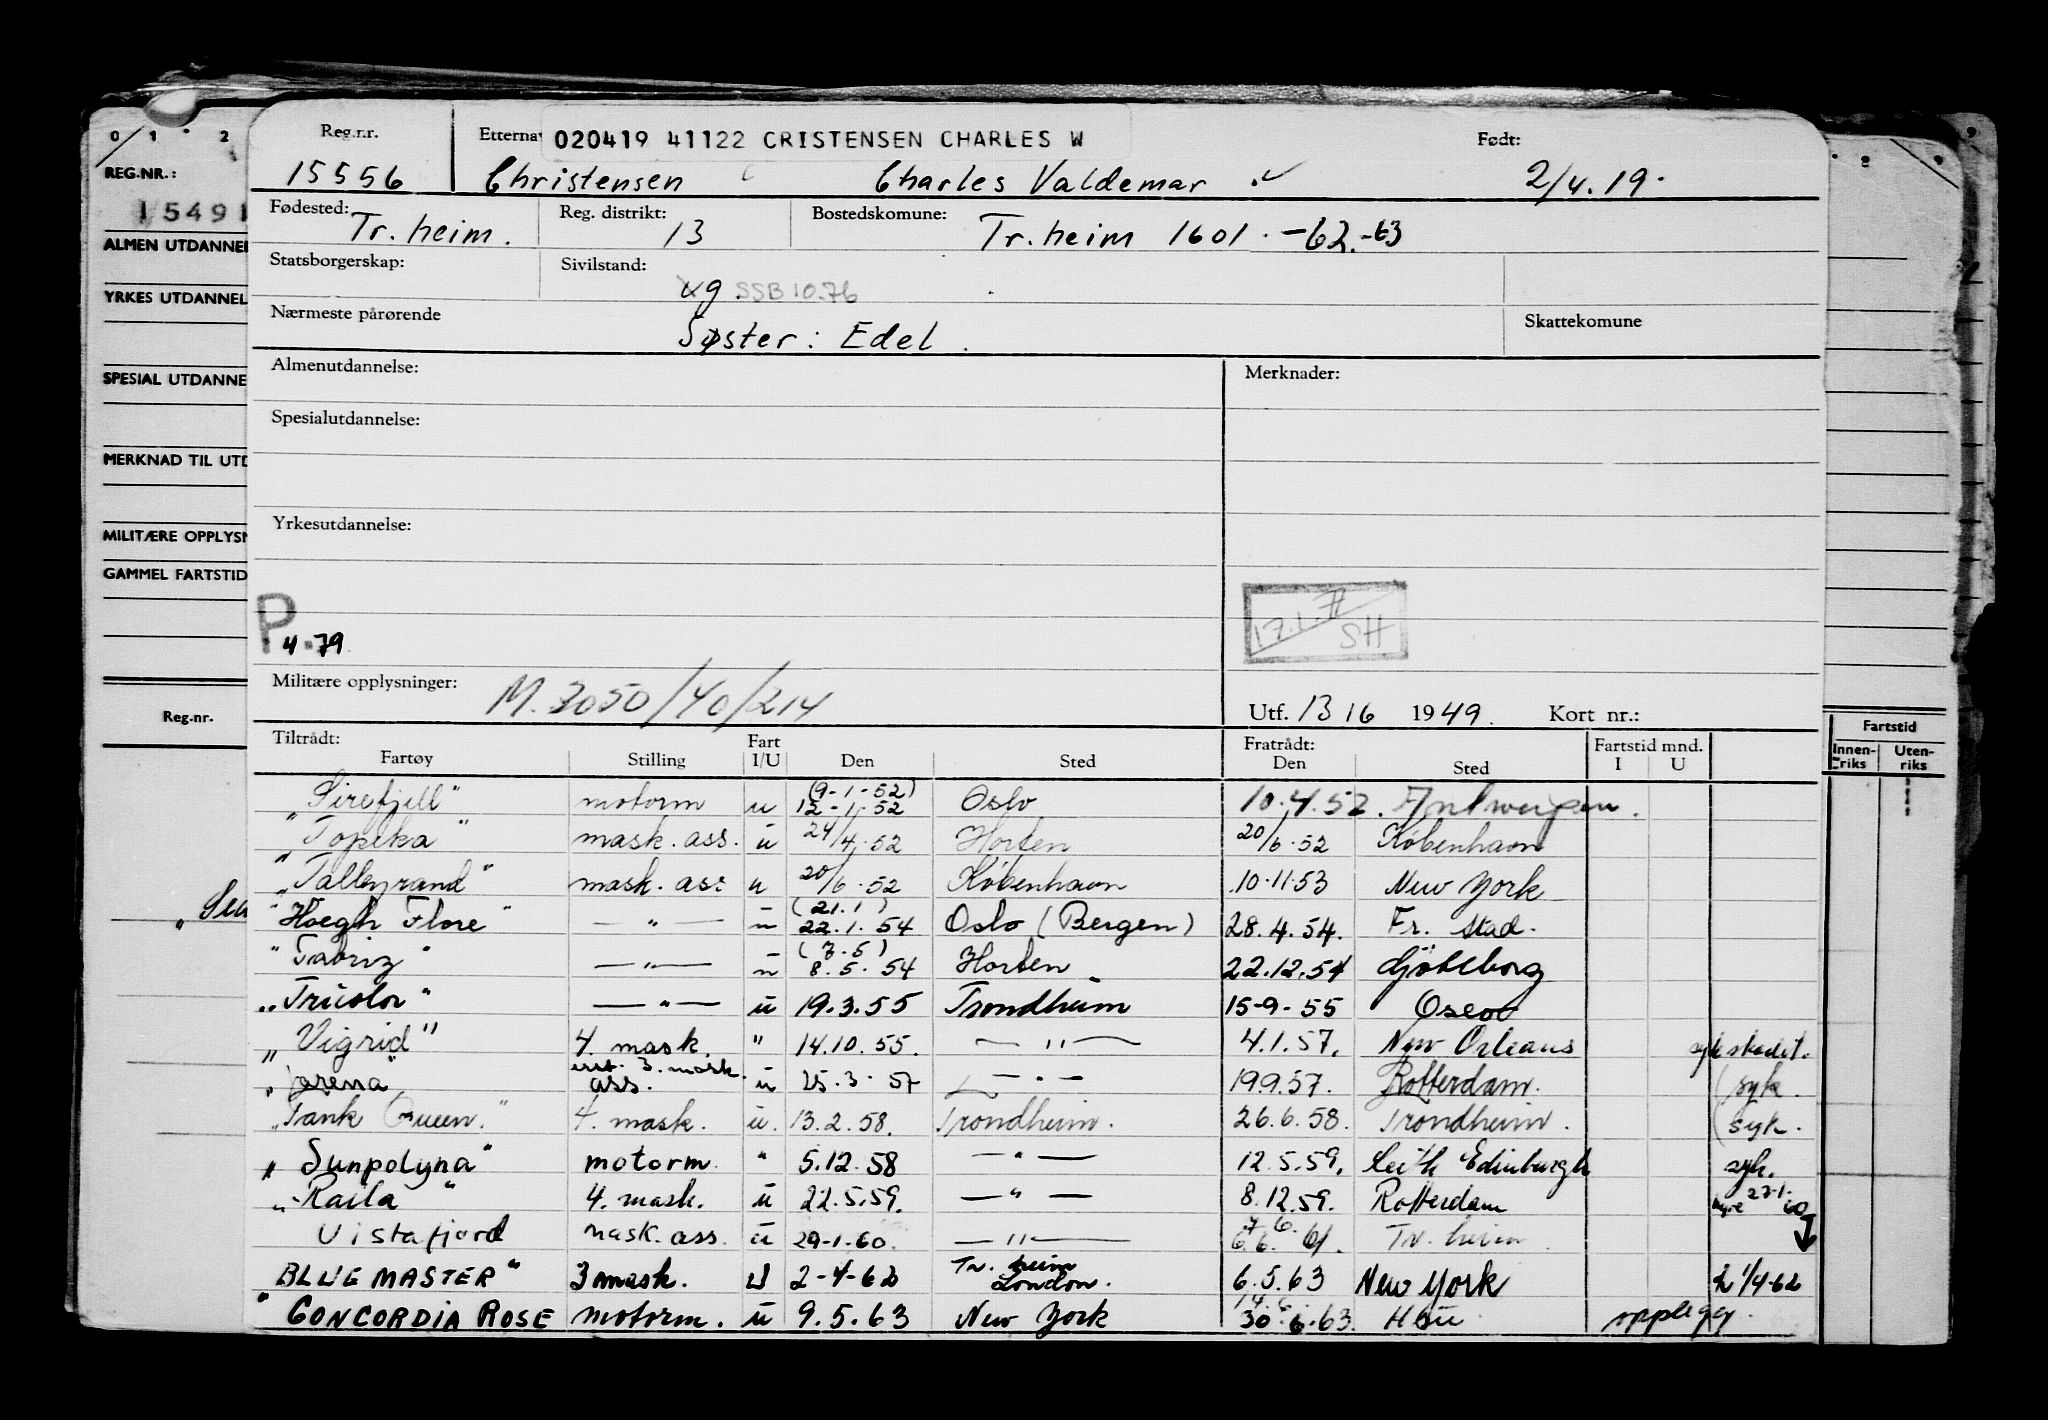 Reg.nr. Etterna 020419 41122 CRISTENSEN CHARLES W Født:
15556 Christensen Charles Valdemar 2/4.19.
Fødested: Tr.heim. Reg. distrikt: 13 Bostedskomune: Tr.heim 1601.-62.-63
Statsborgerskap: Sivilstand: ug. SSB 10.76
Nærmeste pårørende Søster: Edel. Skattekomune
Almenutdannelse: Merknader:
Spesialutdannelse:
Yrkesutdannelse:
17.1.72 SH
P 4.79
Militære opplysninger: M.3050/40/214 Utf. 13/6 1949. Kort nr.:
Tiltrådt: Fartøy Stilling Fart I/U Den Sted Fratrådt: Den Sted Fartstid mnd. I U
"Sirefjell" motorm u (9-1-52) 12-1-52 Oslo 10.4.52. Antwerpen.
"Topeka" mask.ass. u 24/4.52 Horten 20/6.52 København
"Talleyrand" mask. ass u 20/6.52 København 10.11.53 New York
"Høegh Flore" —"— u (21.1) 22.1.54 Oslo (Bergen) 28.4.54. Fr. stad.
"Tabriz" —"— u (7.5) 8.5.54 Horten 22.12.54 Gøteborg
"Tricolor" —"— u 19.3.55 Trondheim 15-9-55 Oslo
"Vigrid" 4. mask. " 14.10.55. —"— 4.1.57. New Orleans syk skadet.
3. mask. ass. u 25.3.57 —"— 19.9.57. Rotterdam. (syk.
"Tank Queen." 4. mask. u. 13.2.58. Trondheim. 26.6.58. Trondheim. (syk.
"Sunpolyna" motorm. " 5.12.58 —"— 12.5.59. Leith Edinburgh syk.
"Raila" 4. mask. u 22.5.59. —"— 8.12.59. Rotterdam
Vistafjord mask.ass. u 29-1-60. —"— 6.6.61. Tr. heim
BLUE MASTER" 3 mask. U 2-4-62 Tr. heim London. 6.5.63 New York h 1/4-62
"CONCORDIA ROSE motorm. u 9.5.63 New York 30.6.63. opplegg.
0 1 2
REG.NR.:
15491
ALMEN UTDANNEL
YRKES UTDANNEL
SPESIAL UTDANNE
MERKNAD TIL UTD
MILITÆRE OPPLYSN
GAMMEL FARTSTID
Reg.nr.
8 9
Fartstid
Innenriks Utenriks